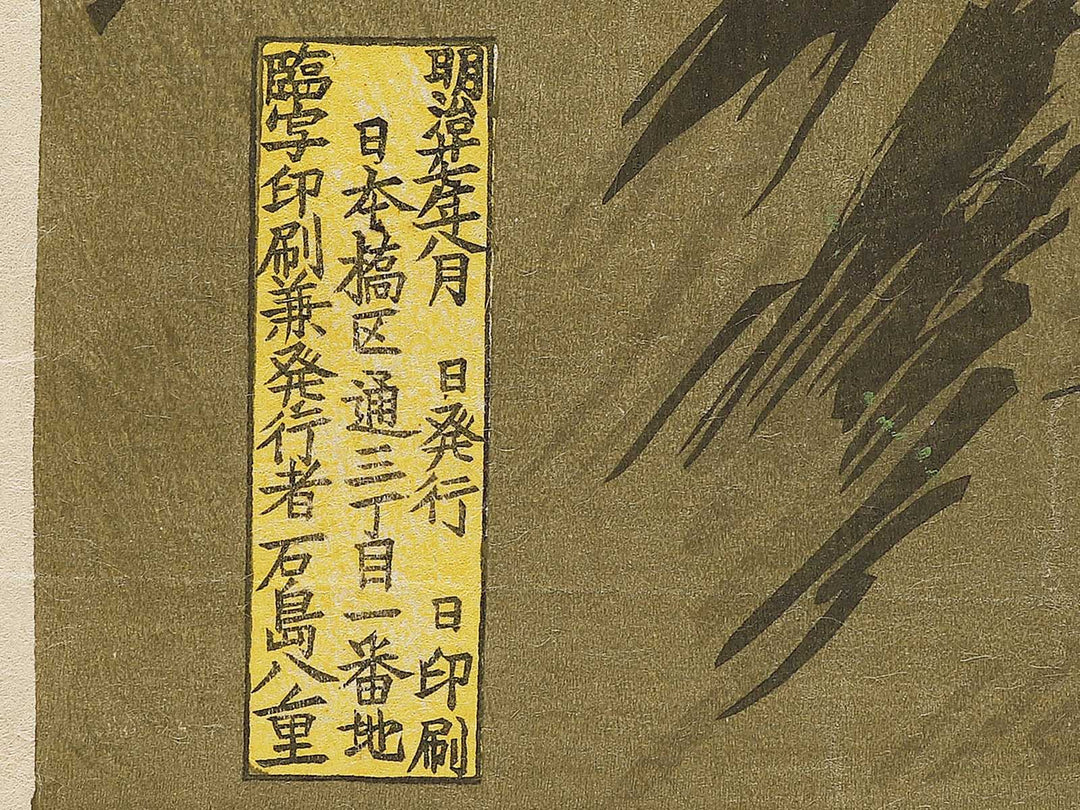 明治廿七年八月 日発行 日印刷
日本槗区通三丁目一番地
臨写印刷兼発行者 石島八重